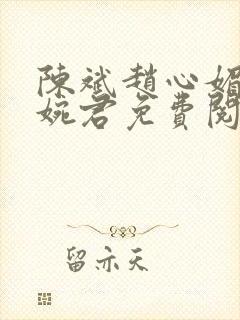 陳斌趙心媚
婉君免費閱
留亦天